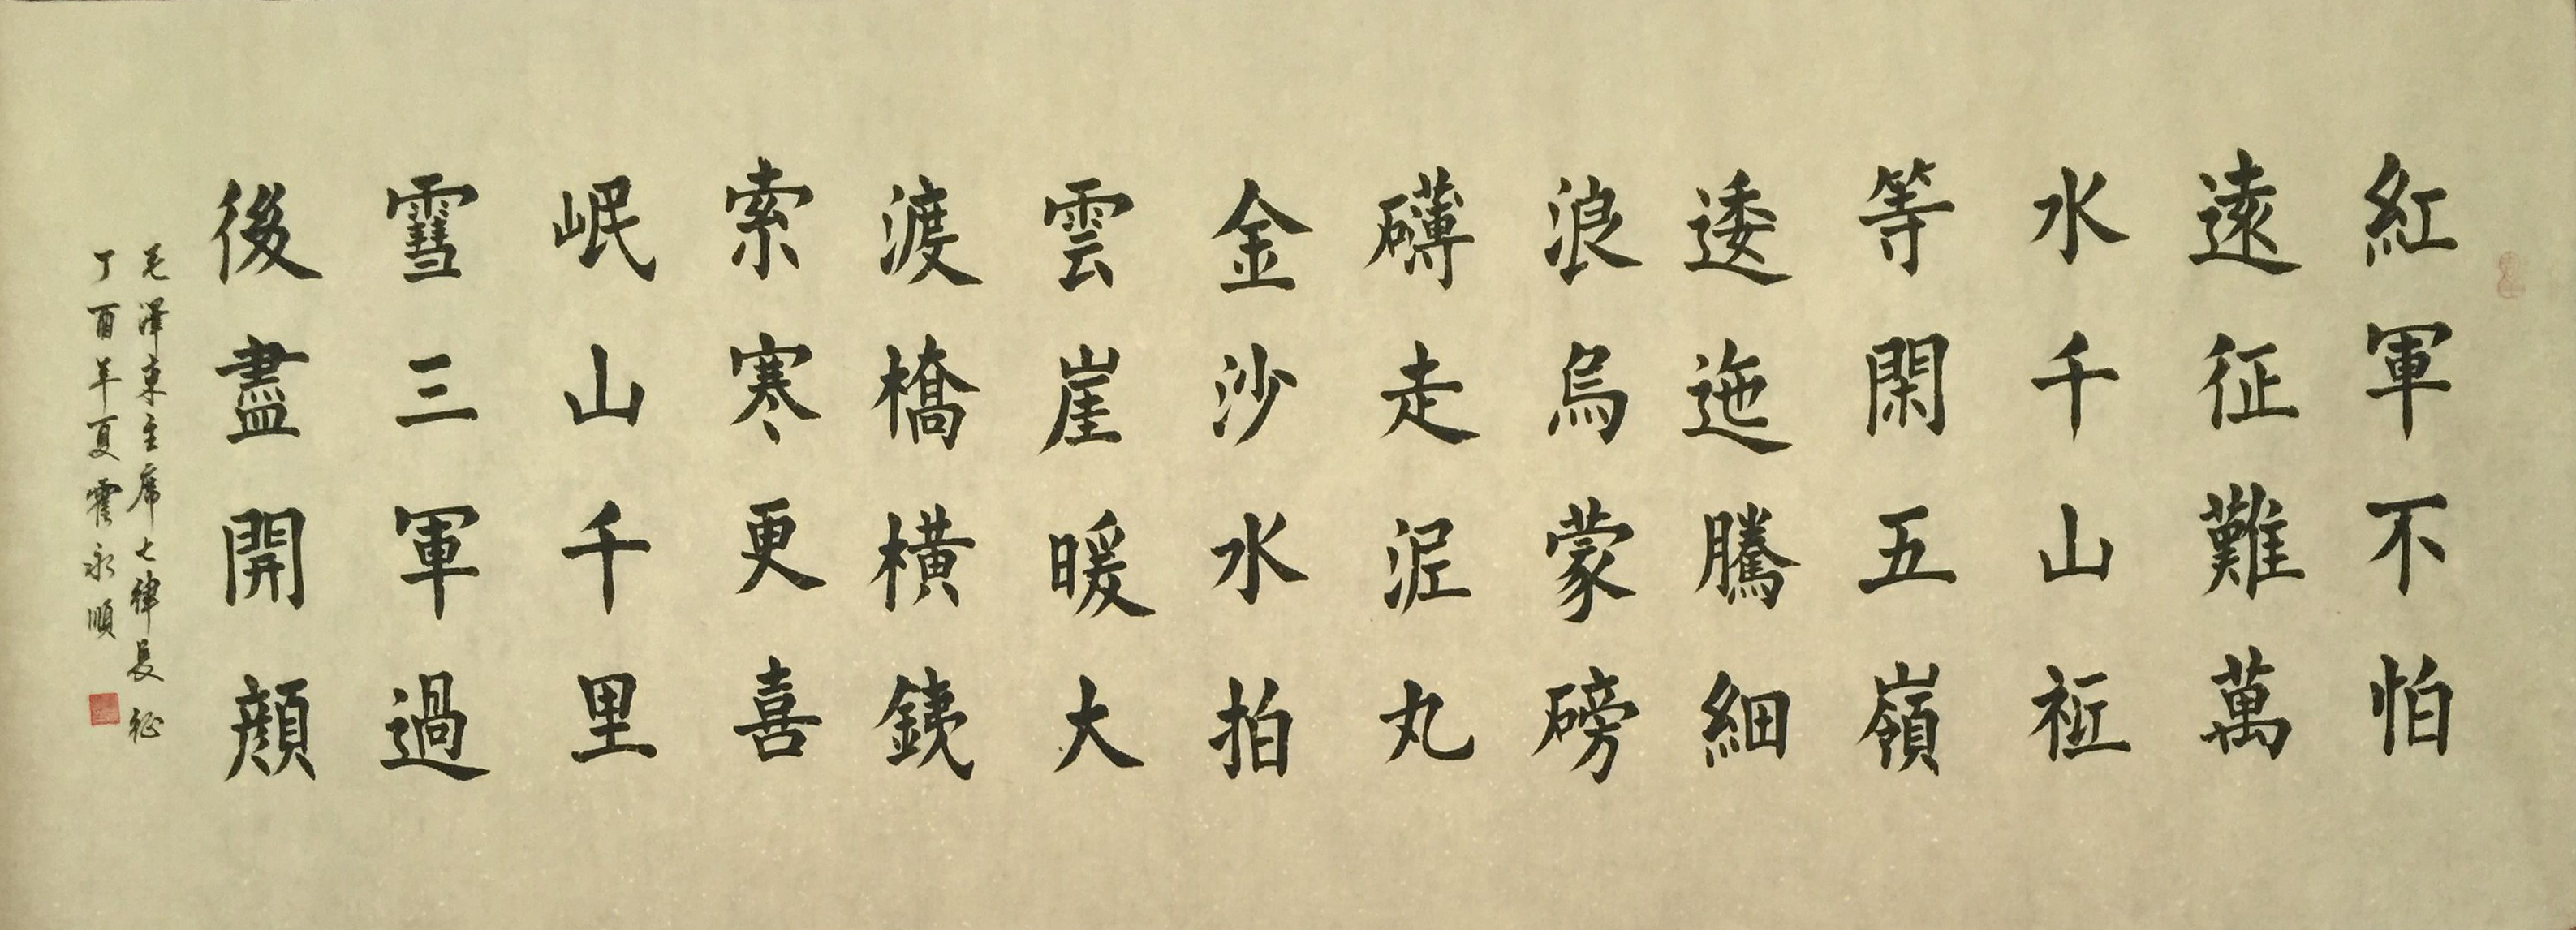 紅軍不怕
遠征難萬
水千山祗
等閑五嶺
逶迤騰細
浪烏蒙磅
礴走泥丸
金沙水拍
雲崖暖大
渡橋橫銕
索寒更喜
岷山千里
䨮三軍過
後盡開顏
毛澤東主席七律長征
丁酉年夏霍永順